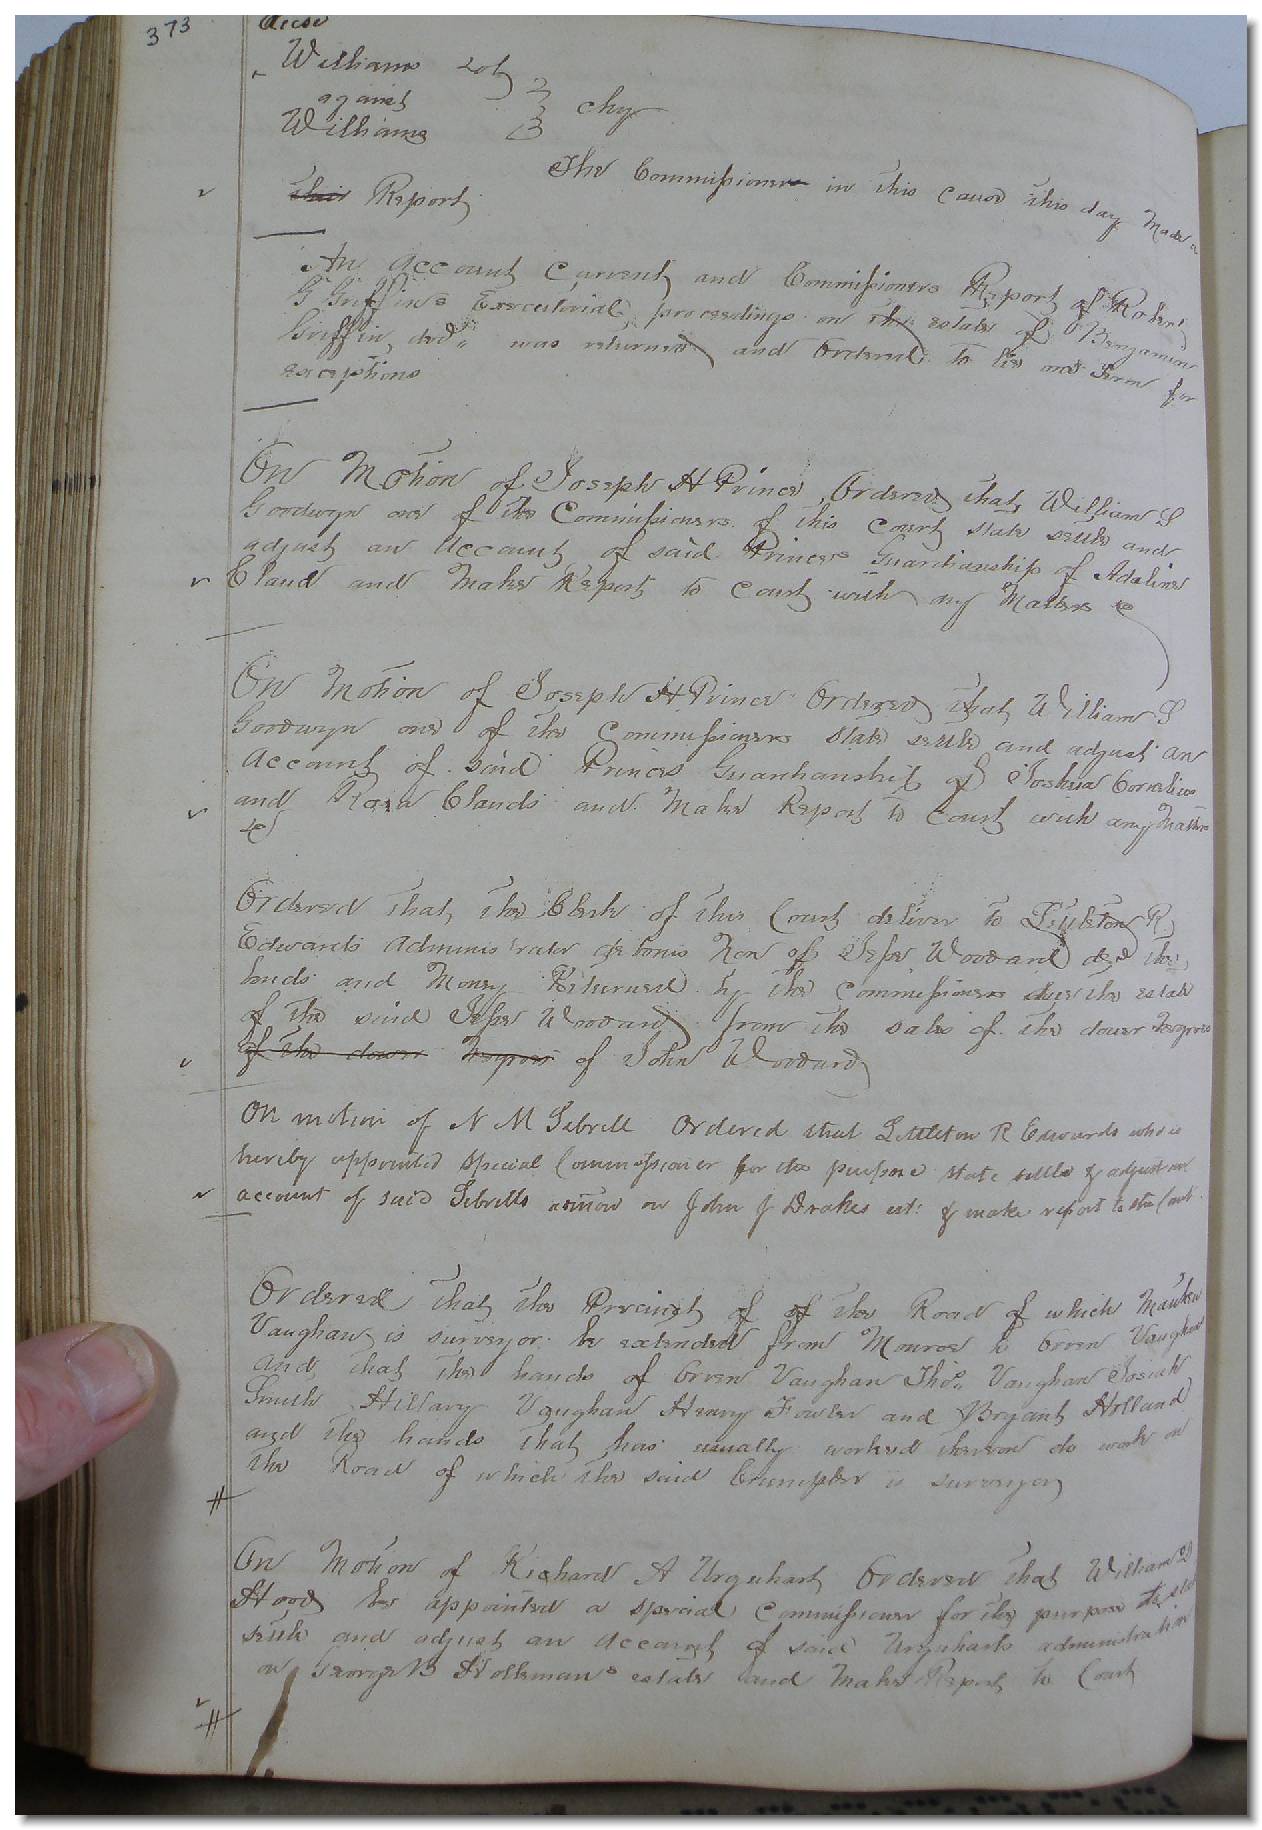 373
Williams
against
Williams } chy
The Commissioner in this cause this day made a
their Report
An account current and Commissioners Report of Robert
G Griffin's Executorial proceedings on the estate of Benjamin
Griffin decd was returned and Ordered to lie one Term for
exceptions
On Motion of Joseph H Prince Ordered that William S
Goodwyn one of the Commissioners of this Court state settle and
adjust an account of said Princes Guardianship of Adeline
Claud and Make Report to Court with any Matters &c
On Motion of Joseph H Prince Ordered that William S
Goodwyn one of the Commissioners state settle and adjust an
Account of said Princes Guardianship of Joshua Cornelius
and Claud and Make Report to Court with any Matters
&c
Ordered that the Clerk of this Court deliver to Littleton R
Edwards administrator debonis Non of Jesse Woodard decd the
bonds and Money Returned by the Commissioners due the estate
of the said Jesse Woodard from the sale of the dower Negroes
of the dower Negroes of John Woodard
On motion of N M Sebrell Ordered that Littleton R Edwards who is
hereby appointed Special Commissioner for the purpose state settle & adjust an
account of said Sebrells admon on John J Drakes est: & make report to the Court
Ordered that the Precinct of of the Road of which
Vaughan is surveyor be extended from Monroe to Orren Vaughan
and that the hands of Orren Vaughan Thos. Vaughan Josiah
Smith Hillary Vaughan Henry Fowler and Bryant Holland
and the hands that has usually worked thereon do work on
the Road of which the said Crumpler is surveyor
On Motion of Richard A Urquhart Ordered that William D
Hood be appointed a special Commissioner for the purpose to state
settle and adjust an account of said Urquharts administration
on George B Holleman's estate and Make Report to Court